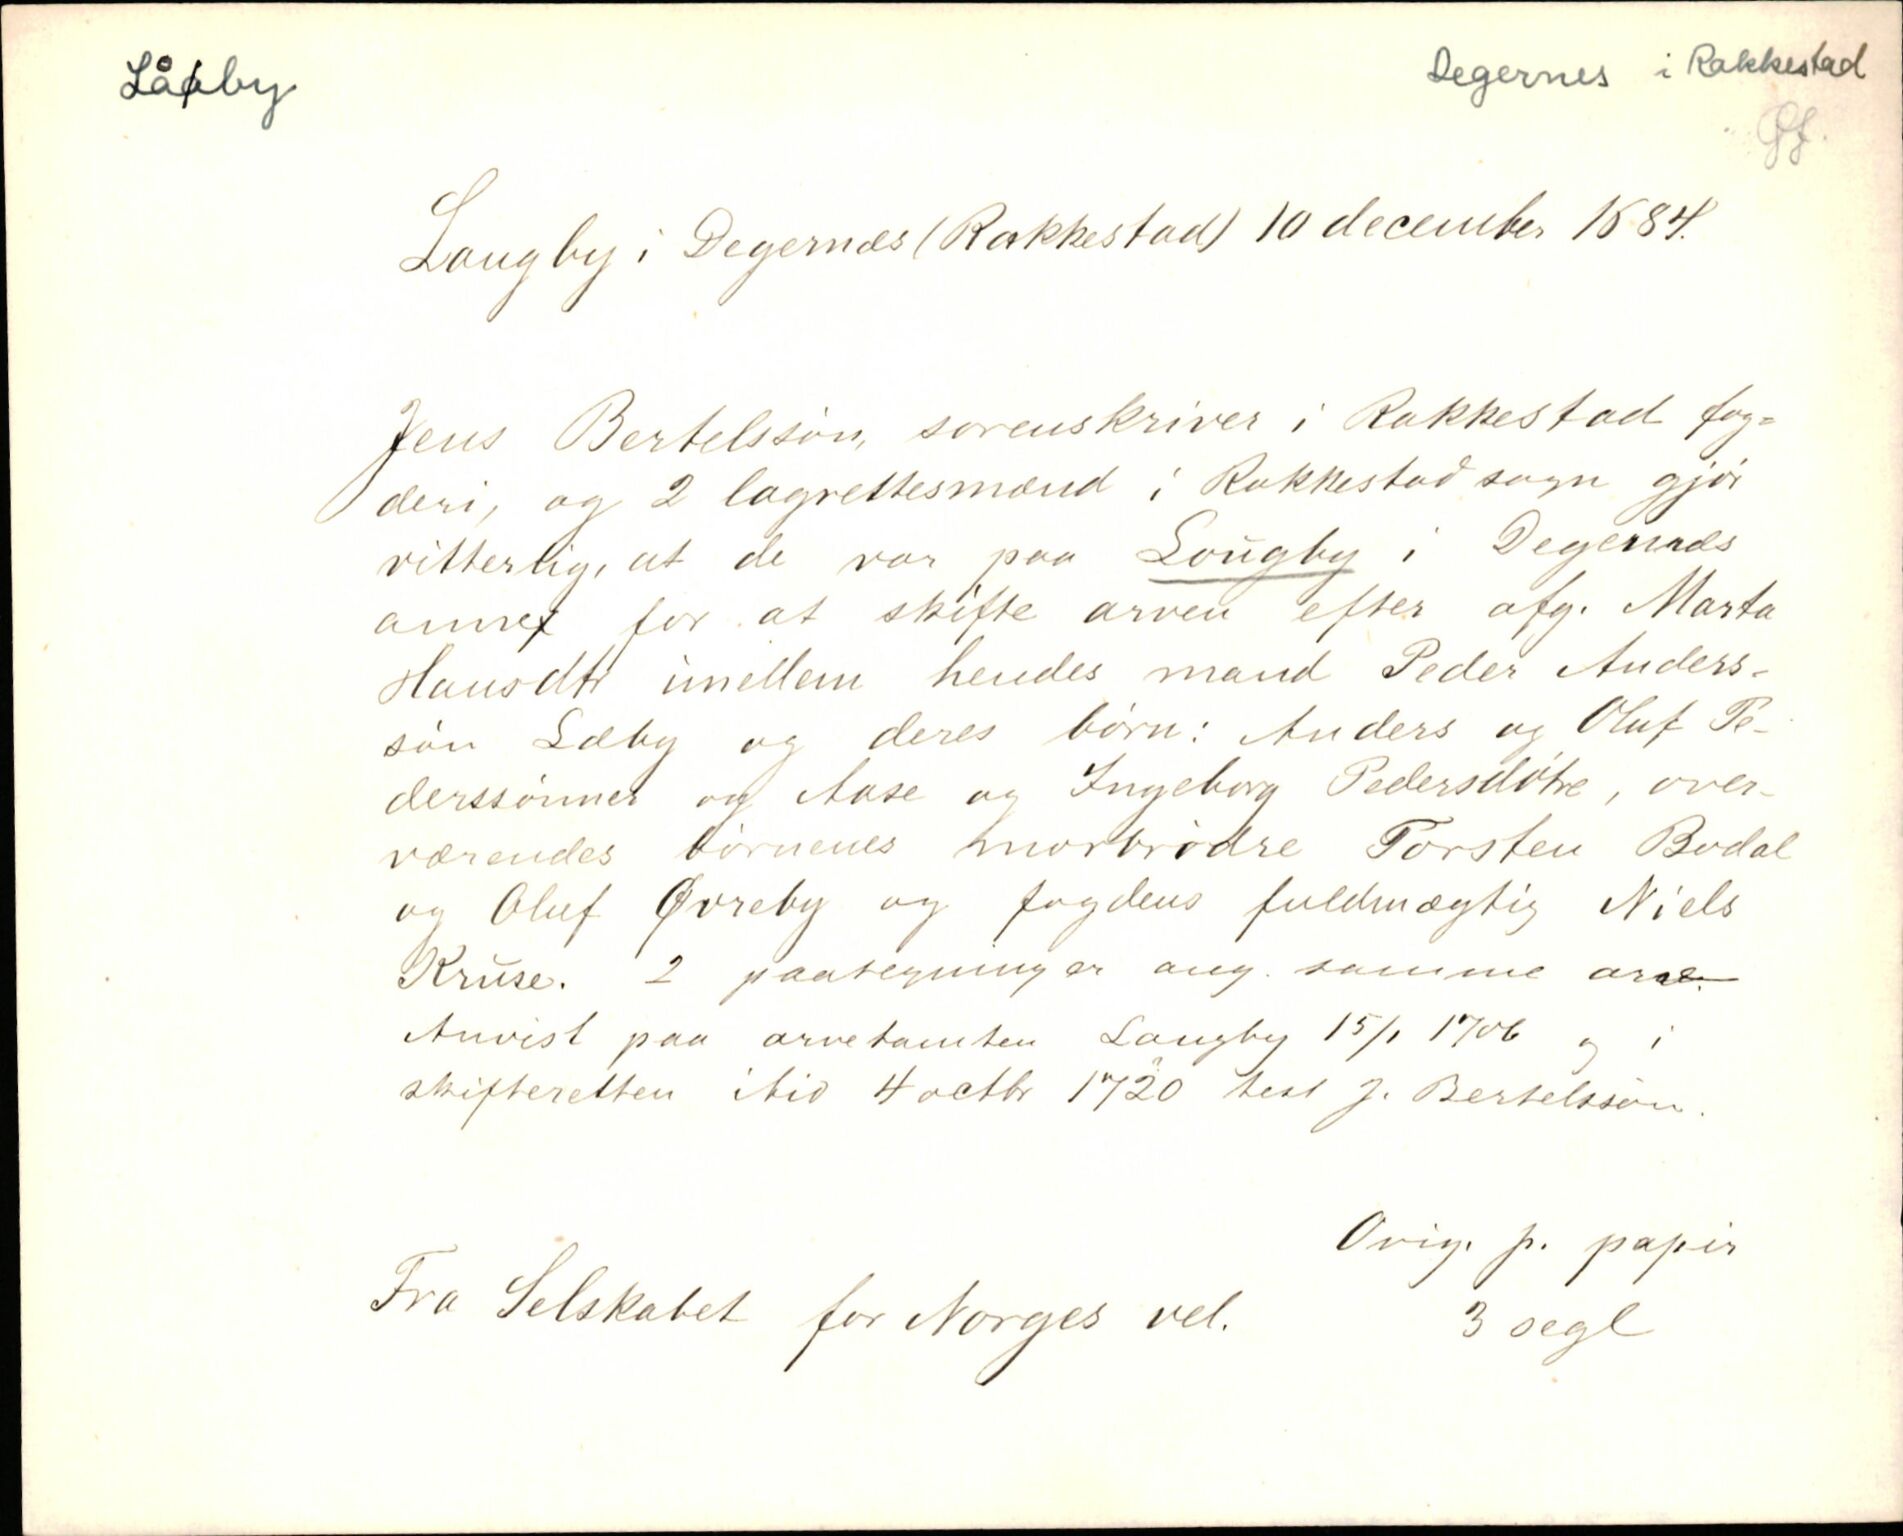 Låby
Degernes i Rakkestad
Øf.
Laugby i Degernæs (Rakkestad) 10 december 1684.
Jens Bertelssøn, sorenskriver i Rakkestad fog=
deri, og 2 lagrettesmænd i Rakkestad sogn gjør
vitterlig, at de var paa Lougby i Degernæs
annex for at skifte arven efter afg. Marta
Hansdtr imellem hendes mand Peder Anders-
søn Læby og deres børn: Anders og Oluf Pe-
derssønner og Aase og Ingeborg Pedersdøtre, over-
værendes børnenes morbrødre Torsten Bodal
og Oluf Øvreby og fogdens fuldmægtig Niels
Kruse. 2 paategninger ang. samme arv.
Anvist paa arvetomten Langby 15/1 1706 og i
skifteretten ibid 4 octbr 1720 test J. Bertelssøn.
Orig. p. papir
Fra Selskabet for Norges vel.
3 segl